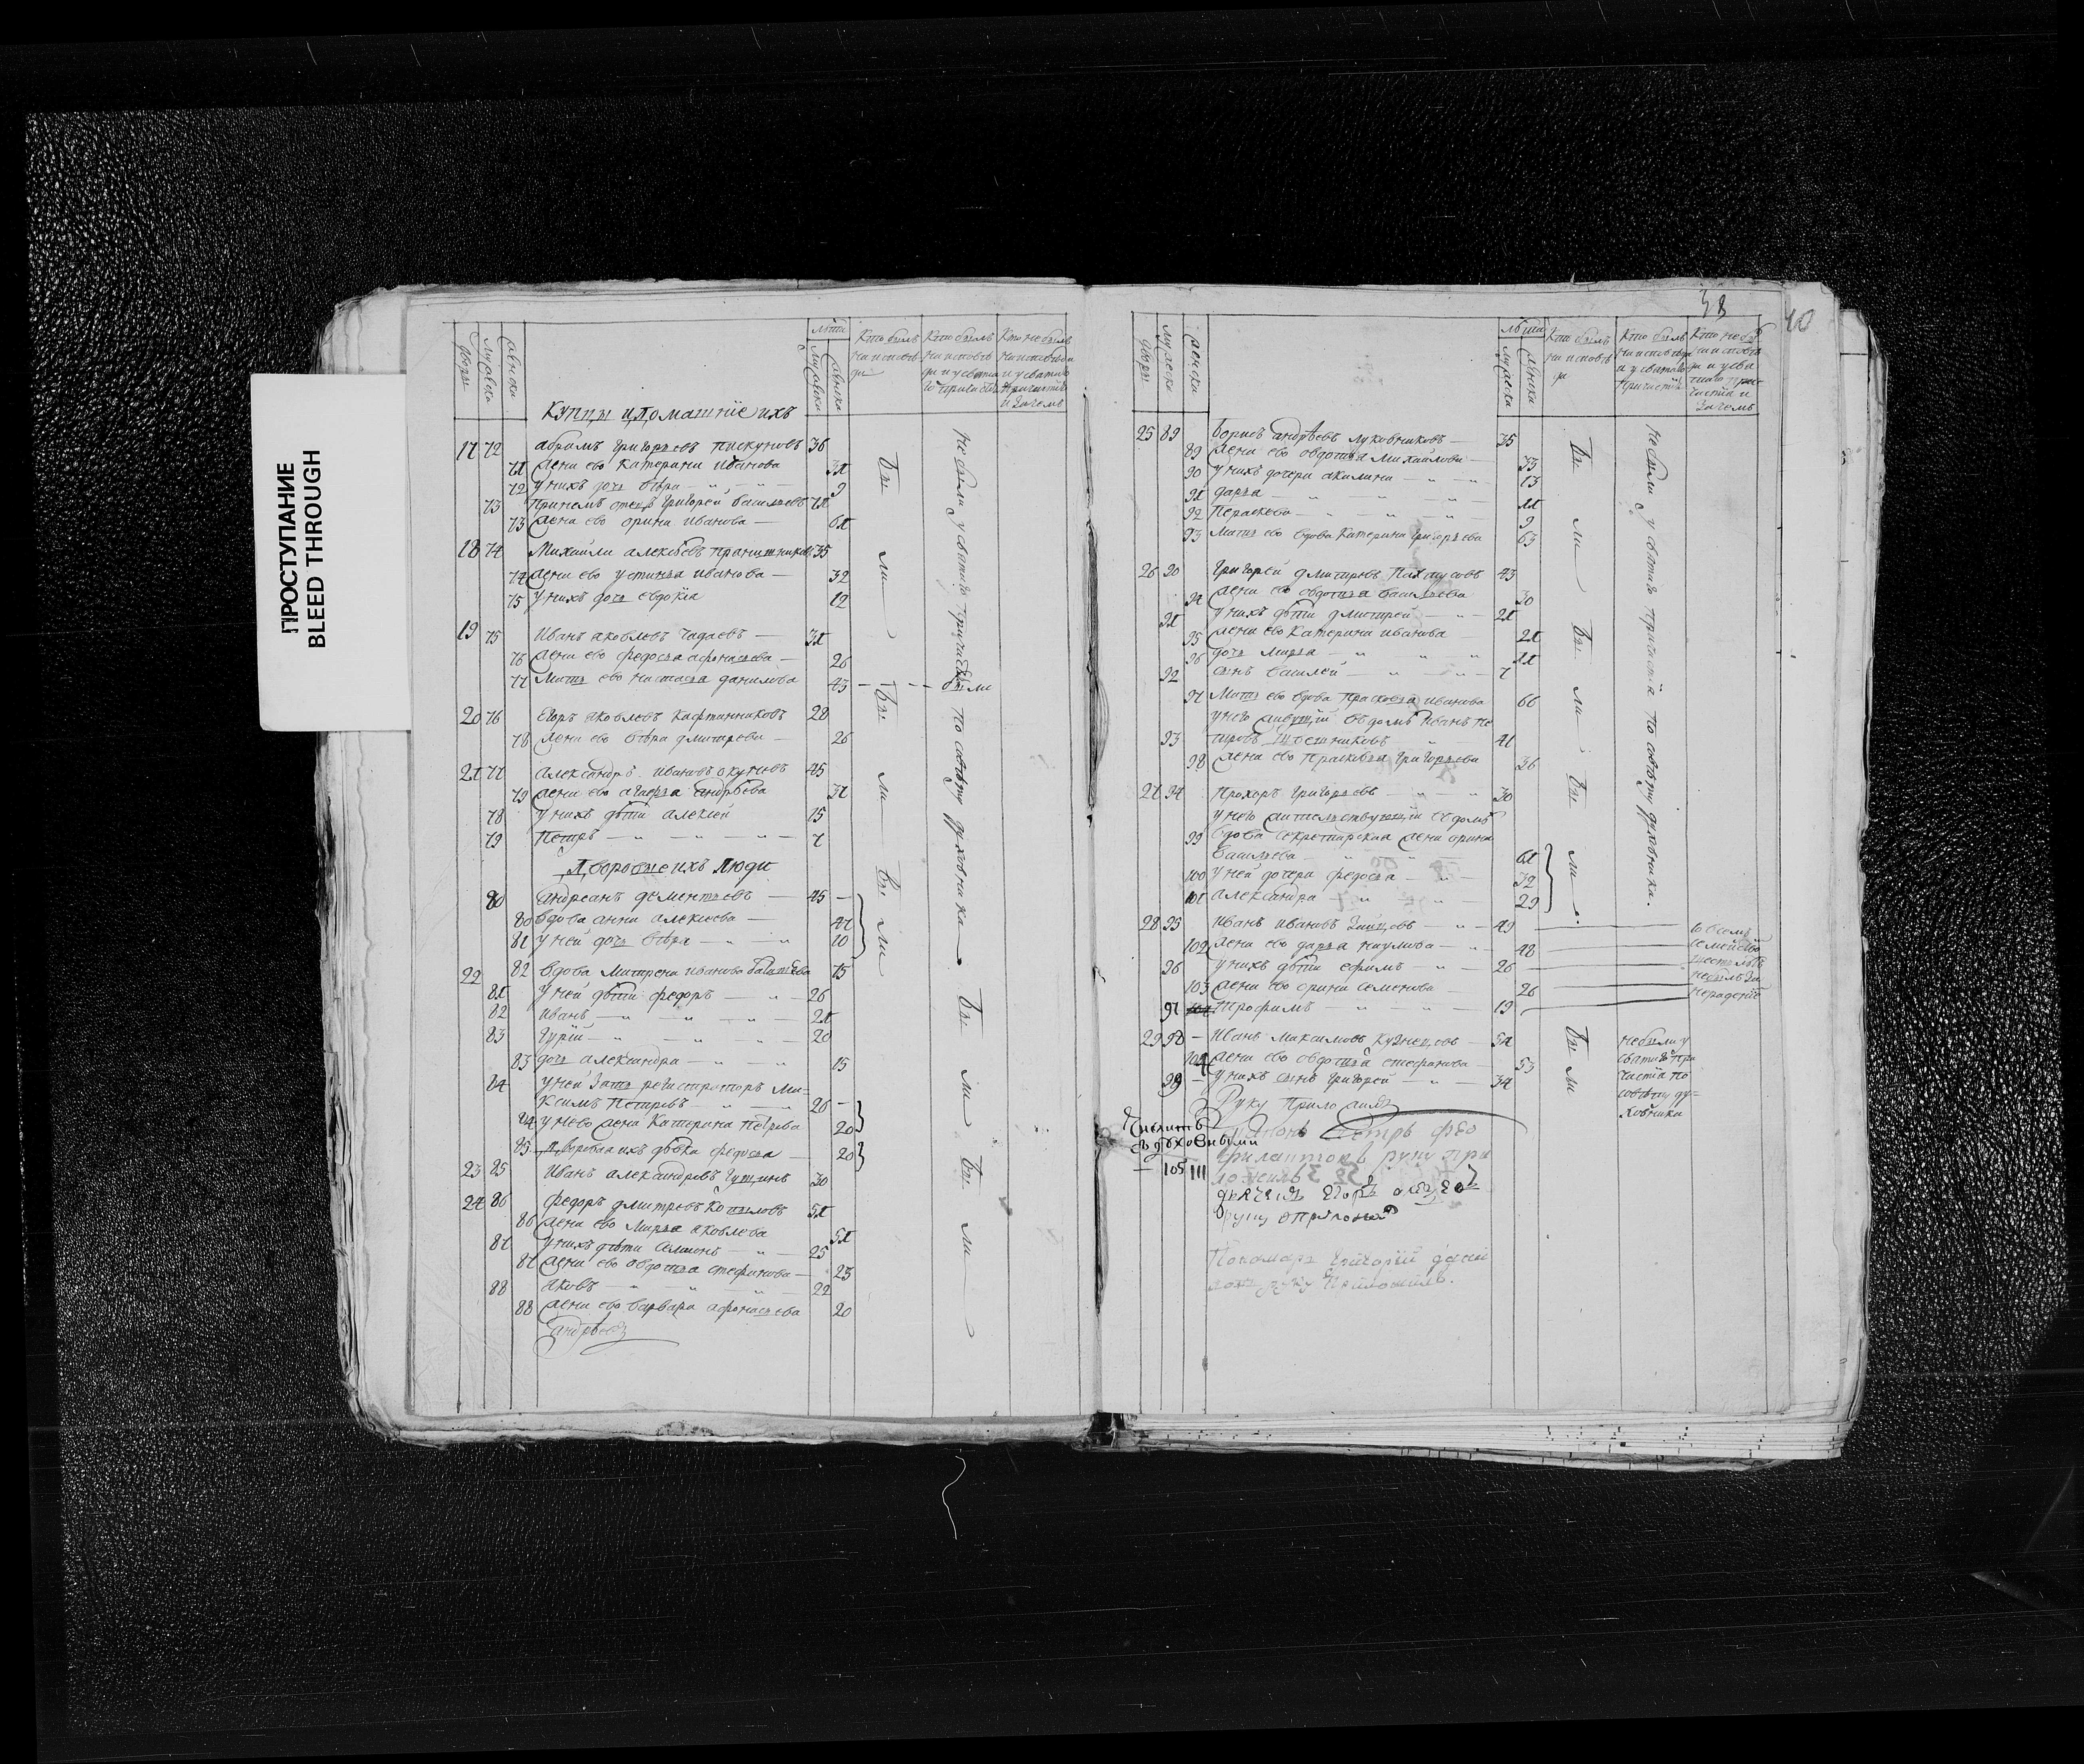 ПРОСТУПАНИЕ
BLEED THROUGH
дворы
мужеска
женска
лѣта
мужеска
женска
Кто былъ на исповѣди
Кто былъ на исповѣди и у святаго причастия
Кто не былъ на исповѣди и у святаго причастия и зачемъ
Купцы и домашние ихъ
17 72 абрамъ григорьевъ пискуновъ 36
71 жена ево катерина иванова 31
72 у нихъ дочь вѣра 9
73 При немъ отецъ григорей васильевъ 71
73 жена ево орина иванова 61
18 74 Михаила алексѣевъ 35
74 жена ево устинья иванова 32
75 у нихъ дочь евдокіа 12
19 75 Иванъ яковлевъ чадаевъ 31
76 жена ево федосья афонасьева 26
77 мать ево настасья данилова 43 были
20 76 Егоръ яковлевъ кафтанниковъ 28
78 жена ево вѣра дмитрева 26
21 77 александръ ивановъ окуневъ 45
79 жена ево агафья андрѣева 31
78 у нихъ дѣти алексей 15
79 Петръ 7
Дворовые ихъ люди
80 андреанъ дементьевъ 45
80 вдова анна алексеева 47
81 у ней дочь вѣра 10
22 82 вдова матрена иванова 75
81 у ней дѣти федоръ 26
82 иванъ 21
83 гурій 20
83 дочь александра 15
84 у ней зять регистраторъ Ма-
ксимъ Петровъ 26
84 у нево жена Катерина петрова 20
85 дворовая ихъ дѣвка федосья 20
23 85 Иванъ александровъ 30
24 86 федоръ дмитревъ копыловъ 51
86 жена ево марья яковлева 51
87 у нихъ дѣти 25
87 жена ево овдотья стефанова 23
88 яковъ 22
88 жена ево варвара афонасьева 20
андрѣевъ
Были
не были у святаго причастія по совѣту духовника
Были
38
40
дворы
мужески
женски
лѣта
мужеска
женска
Кто былъ на исповѣди
Кто былъ на исповѣди и у святаго причастія
Кто не былъ на исповѣди и у святаго причастія и зачемъ
25 89 борисъ андрѣевъ луковниковъ 35
89 жена ево овдотья михайлова 35
90 у нихъ дочери акилина 13
91 дарья 11
92 Пераскева 9
93 Мать ево вдова катерина григорьева 63
26 90 григорей дмитревъ пахатусовъ 43
94 жена ево овдотья васильева 30
91 у нихъ дѣти дмитрей 21
95 жена ево катерина иванова 21
96 дочь марья 11
92 сынъ василей 7
97 Мать ево вдова прасковья иванова 66
у него живущій въ домѣ иванъ пе
93 тровъ 41
98 жена ево прасковья григорьева 36
27 94 Прохоръ григорьевъ 30
у него жительствующая въ домѣ
99 вдова секретарская жена орина
васильева 61
100 у ней дочери федосья 32
101 александра 29
28 95 иванъ ивановъ зайцовъ 49
102 жена ево дарья наумова 48
96 у нихъ дѣти ефимъ 26
103 жена ево орина семенова 26
97 Трофимъ 19
29 98 Иванъ максимовъ кузнецовъ 51
104 жена ево овдотья стефанова 53
99 у нихъ сынъ григорей 34
Были
не были у святаго причастія по совѣту духовника.
со всемъ
семейство
шесть лѣтъ
небылъ за
нерадение
Были
не были у
святаго при
частія по
совѣту ду=
ховника
Руку приложилъ
з духовными
105 111
руку при
ложилъ
дьячекъ егоръ
руку приложилъ
Пономарь григорій
руку приложилъ.